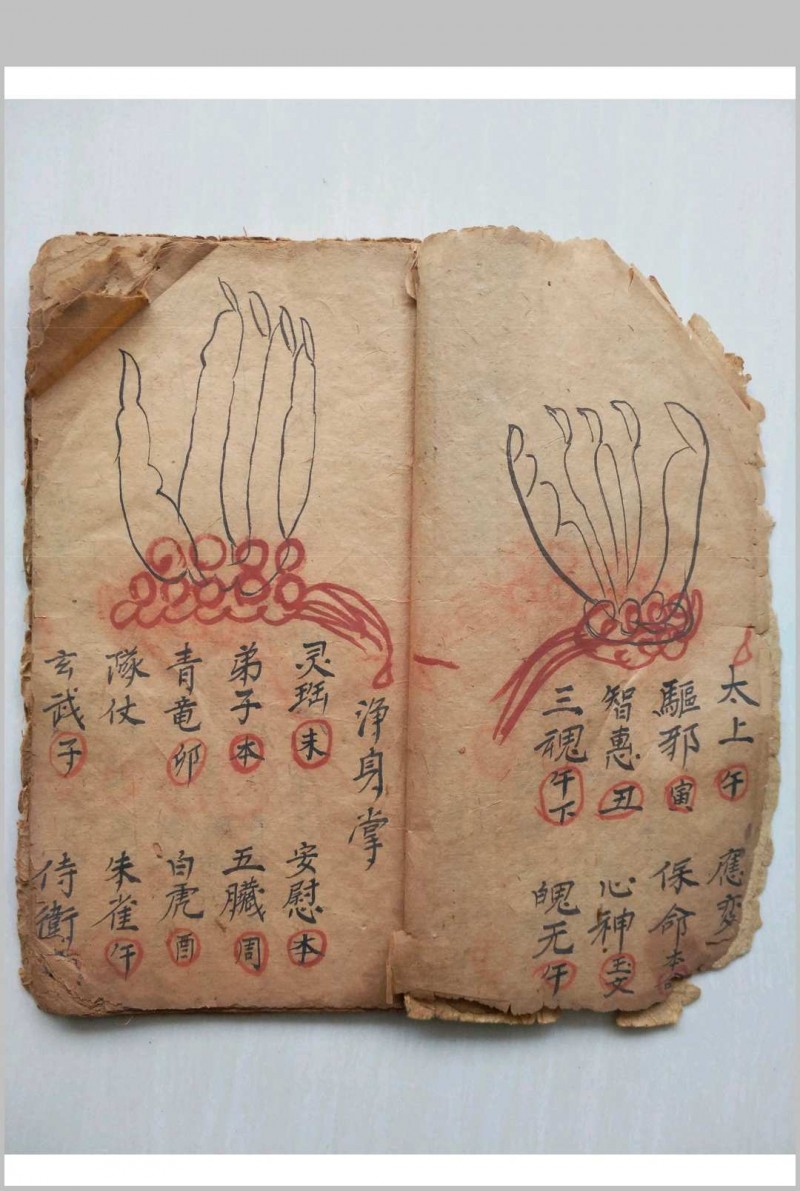 太上午 應變
驅邪寅 保命本
智惠丑 心神玉文
三魂午下 魄无午
浄身掌
灵珤未 安慰本
弟子本 五臟周
青竜卯 白虎酉
隊仗 朱雀午
玄武子 侍衛